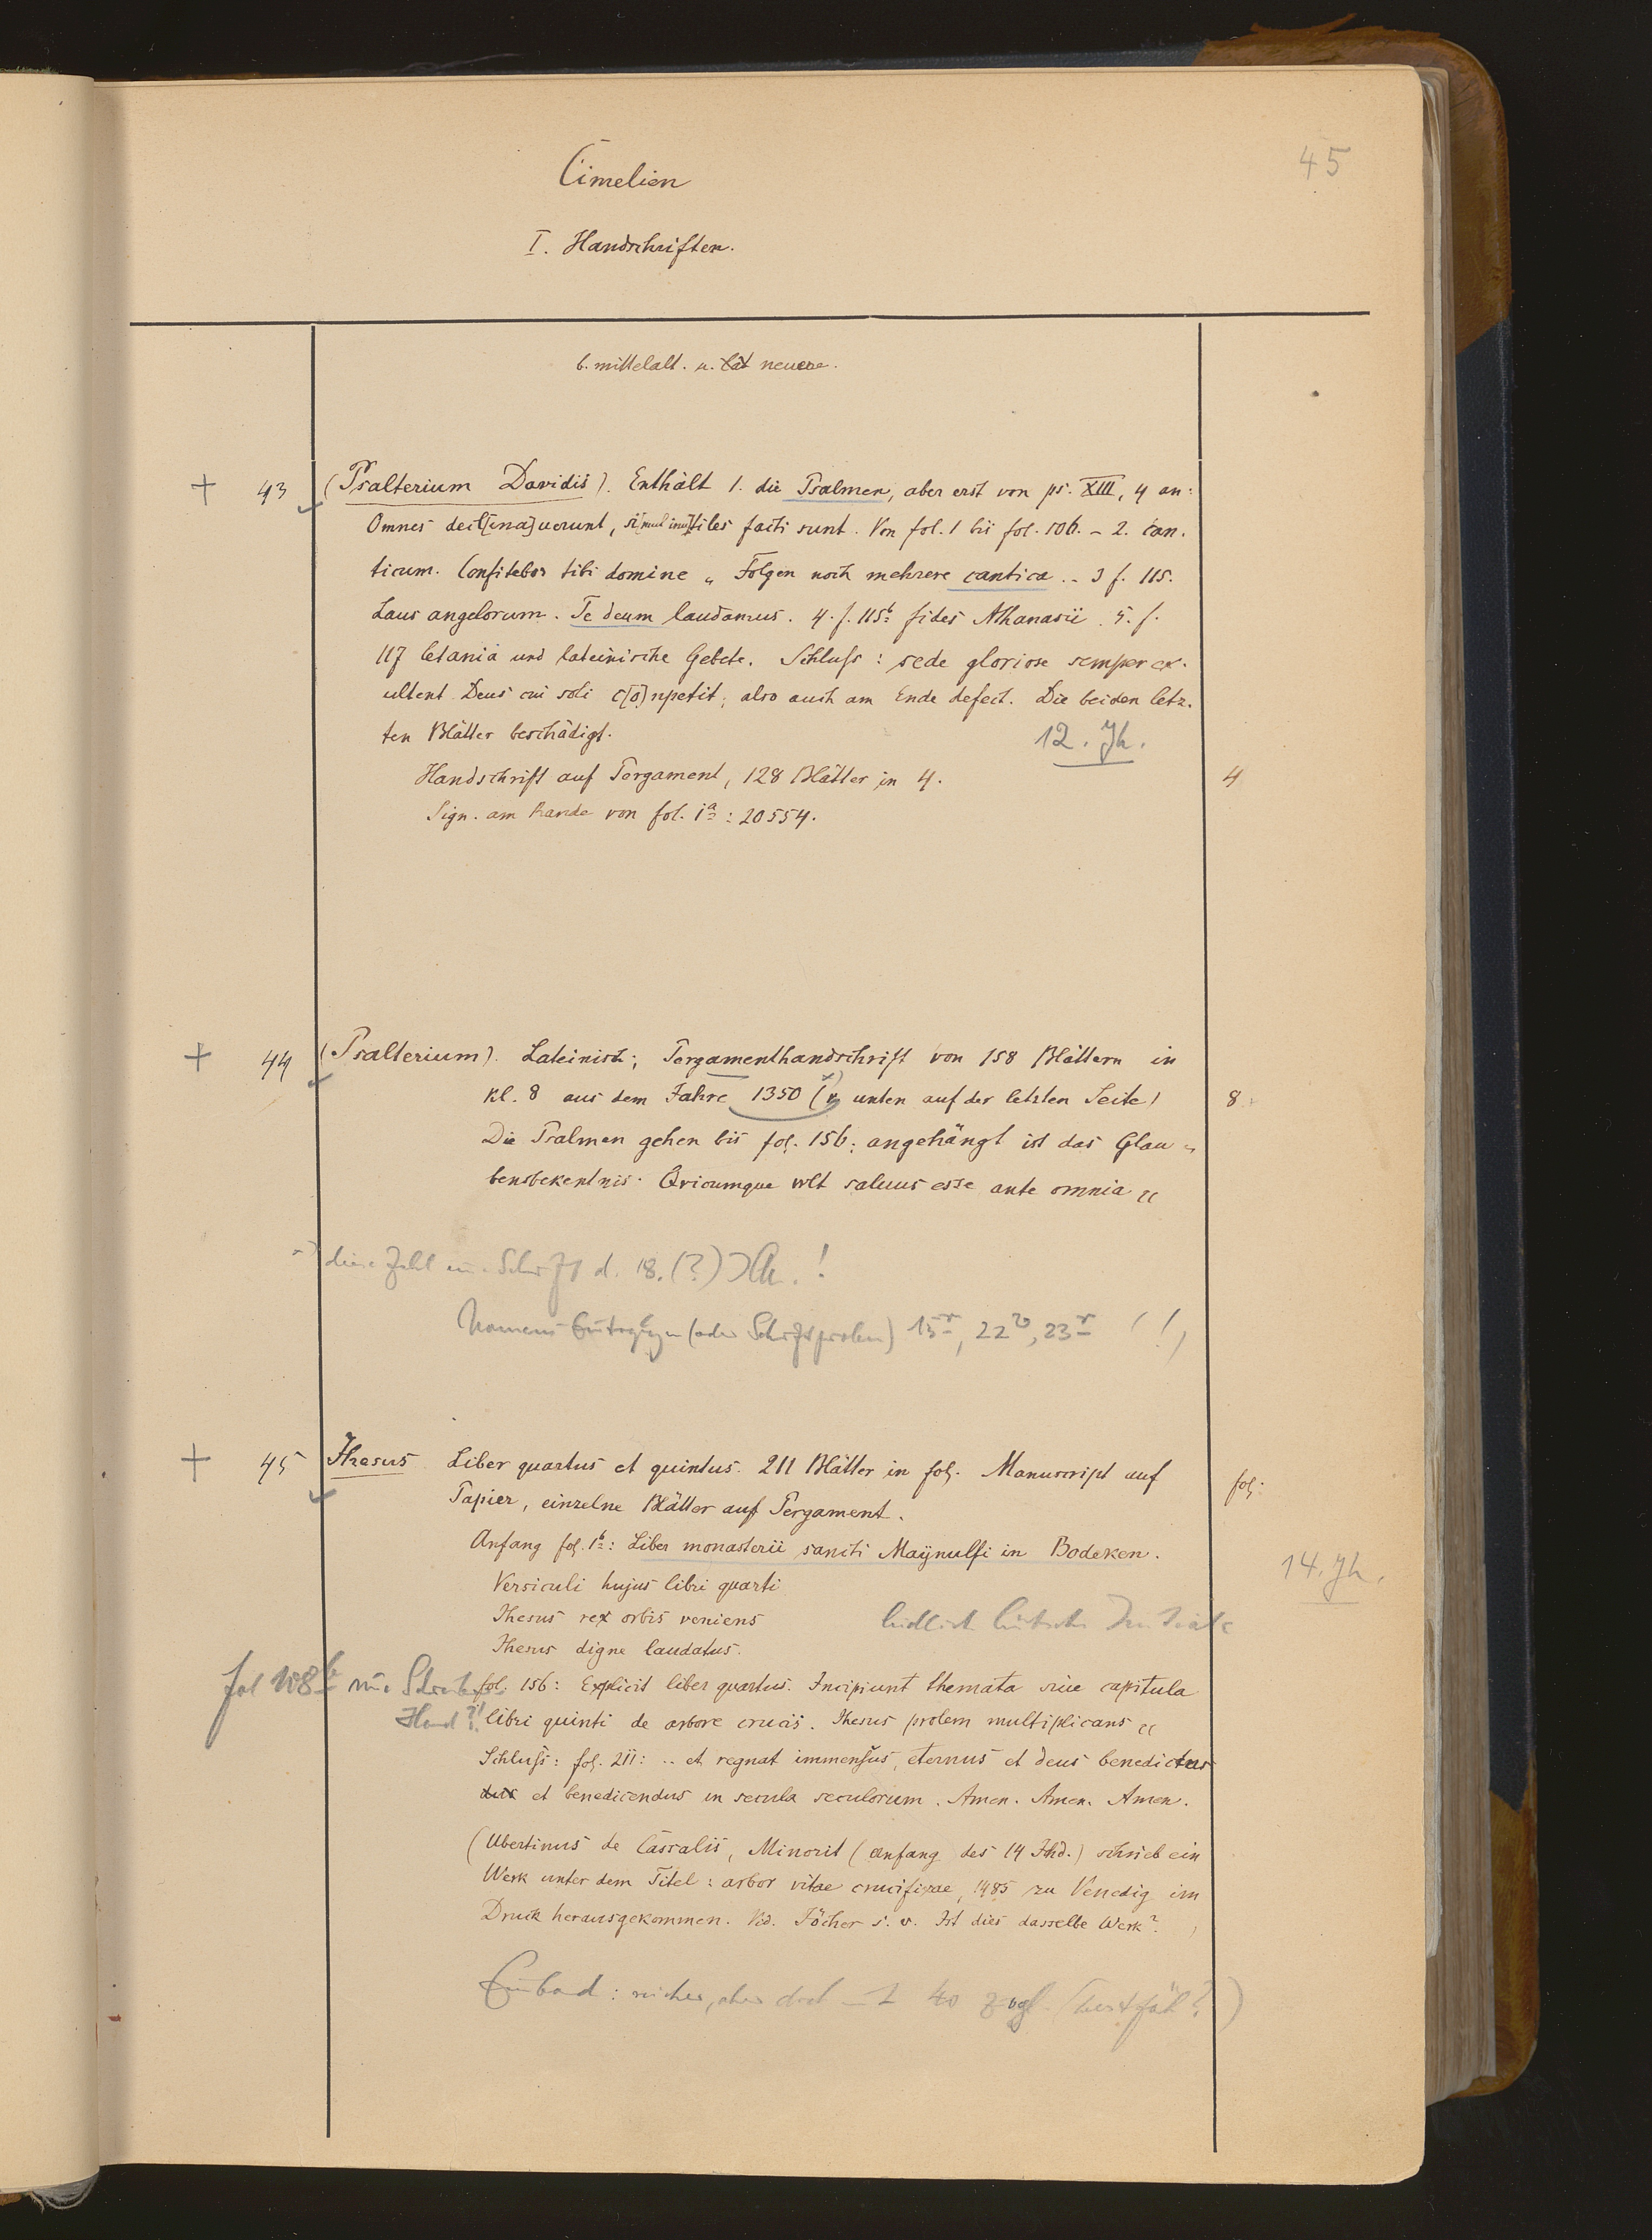 45
Cimelien
I. Handschriften.
b. mittelalt. u. neuere.
+ 43 (Psalterium Davidis). Enthält 1. die Psalmen, aber erst von ps. XIII, 4 an:
Omnes decl[ina]verunt, si[mul inu]tiles facti sunt. Von fol. 1 bis fol. 106. – 2. can-
ticum. Confitebor tibi domine „ Folgen noch mehrere cantica. – 3 f. 115.
Laus angelorum. Te deum laudamus. 4. f. 115b: fides Athanasii. 5. f.
117 letania und lateinische Gebete. Schluss: sede gloriose semper ex-
ultent Deus cui soli c[o]npetit; also auch am Ende defect. Die beiden letz-
ten Blätter beschädigt.
12. Jh.
Handschrift auf Pergament, 128 Blätter in 4. 4
Sign. am Rande von fol. 1a: 20554.
+ 44 (Psalterium). Lateinisch; Pergamenthandschrift von 158 Blättern in
kl. 8 aus dem Jahre 1350 ( unten auf der letzten Seite) 8
Die Psalmen gehen bis fol. 156; angehängt ist das Glau-
bensbekentnis. Qvicumque vvlt saluus esse ante omnia „
diese Zahl Schrift d. 18. (?) Jh.!
(oder Schriftproben) 15r, 22v, 23r (!)
+ 45 Jhesus Liber quartus et quintus. 211 Blätter in fol. Manuscript auf fol:
Papier, einzelne Blätter auf Pergament.
Anfang fol. 1b: Liber monasterii sancti Maÿnulfi in Bodeken.
14. Jh.
Versiculi hujus libri quarti
Jhesus rex orbis veniens
Initiale
Jhesus digne laudatus.
fol. 156: Explicit liber quartus. Incipiunt themata siue capitula
fol 108b
Hand?!
libri quinti de arbore crucis. Jhesus prolem multiplicans „
Schluß: fol. 211: .. et regnat immensus, eternus et deus benedictus
et benedicendus in secula seculorum. Amen. Amen. Amen.
(Ubertinus de Cassalis, Minorit (anfang des 14 Jhd.) schrieb ein
Werk unter dem Titel: arbor vitae crucifixae, 1485 zu Venedig im
Druck herausgekommen. Vid. Jöcher s. v. Ist dies dasselbe Werk?
Einband: